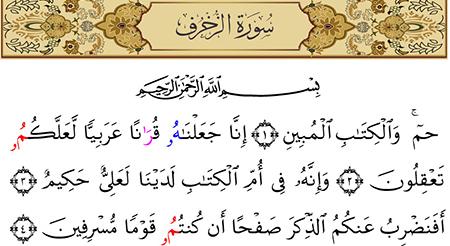 سُورَةُ الزُّخْرُفِ
بِسْمِ ٱللَّهِ ٱلرَّحْمَٰنِ ٱلرَّحِيمِ
حمٓ وَٱلْكِتَٰبِ ٱلْمُبِينِ ﴿١﴾ إِنَّا جَعَلْنَٰهُۥ قُرَٰنًا عَرَبِيًّا لَّعَلَّكُمُۥ
تَعْقِلُونَ ﴿٢﴾ وَإِنَّهُۥ فِىٓ أُمِّ ٱلْكِتَٰبِ لَدَيْنَا لَعَلِىٌّ حَكِيمٌ ﴿٣﴾
أَفَنَضْرِبُ عَنكُمُ ٱلذِّكْرَ صَفْحًا أَن كُنتُمُۥ قَوْمًا مُّسْرِفِينَ ﴿٤﴾